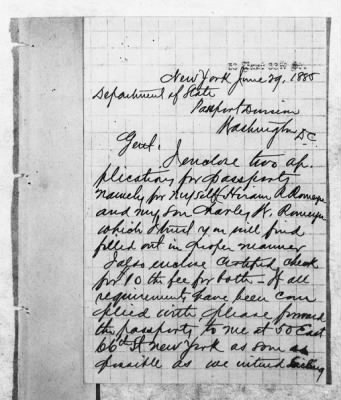 New York June 29, 1885
Department of State
Passport Division
Washington D.C
Gent.
I enclose two ap-
plications for passports
namely for myself Hiram R. Romeyn
and my son Charles W. Romeyn
which I trust you will find
filled out in proper manner
I also enclose certified check
for 10 the fee for both - If all
requirements have been com
plied with please forward
the passports to me at 50 East
66th St New York as soon as
possible as we intend sailing